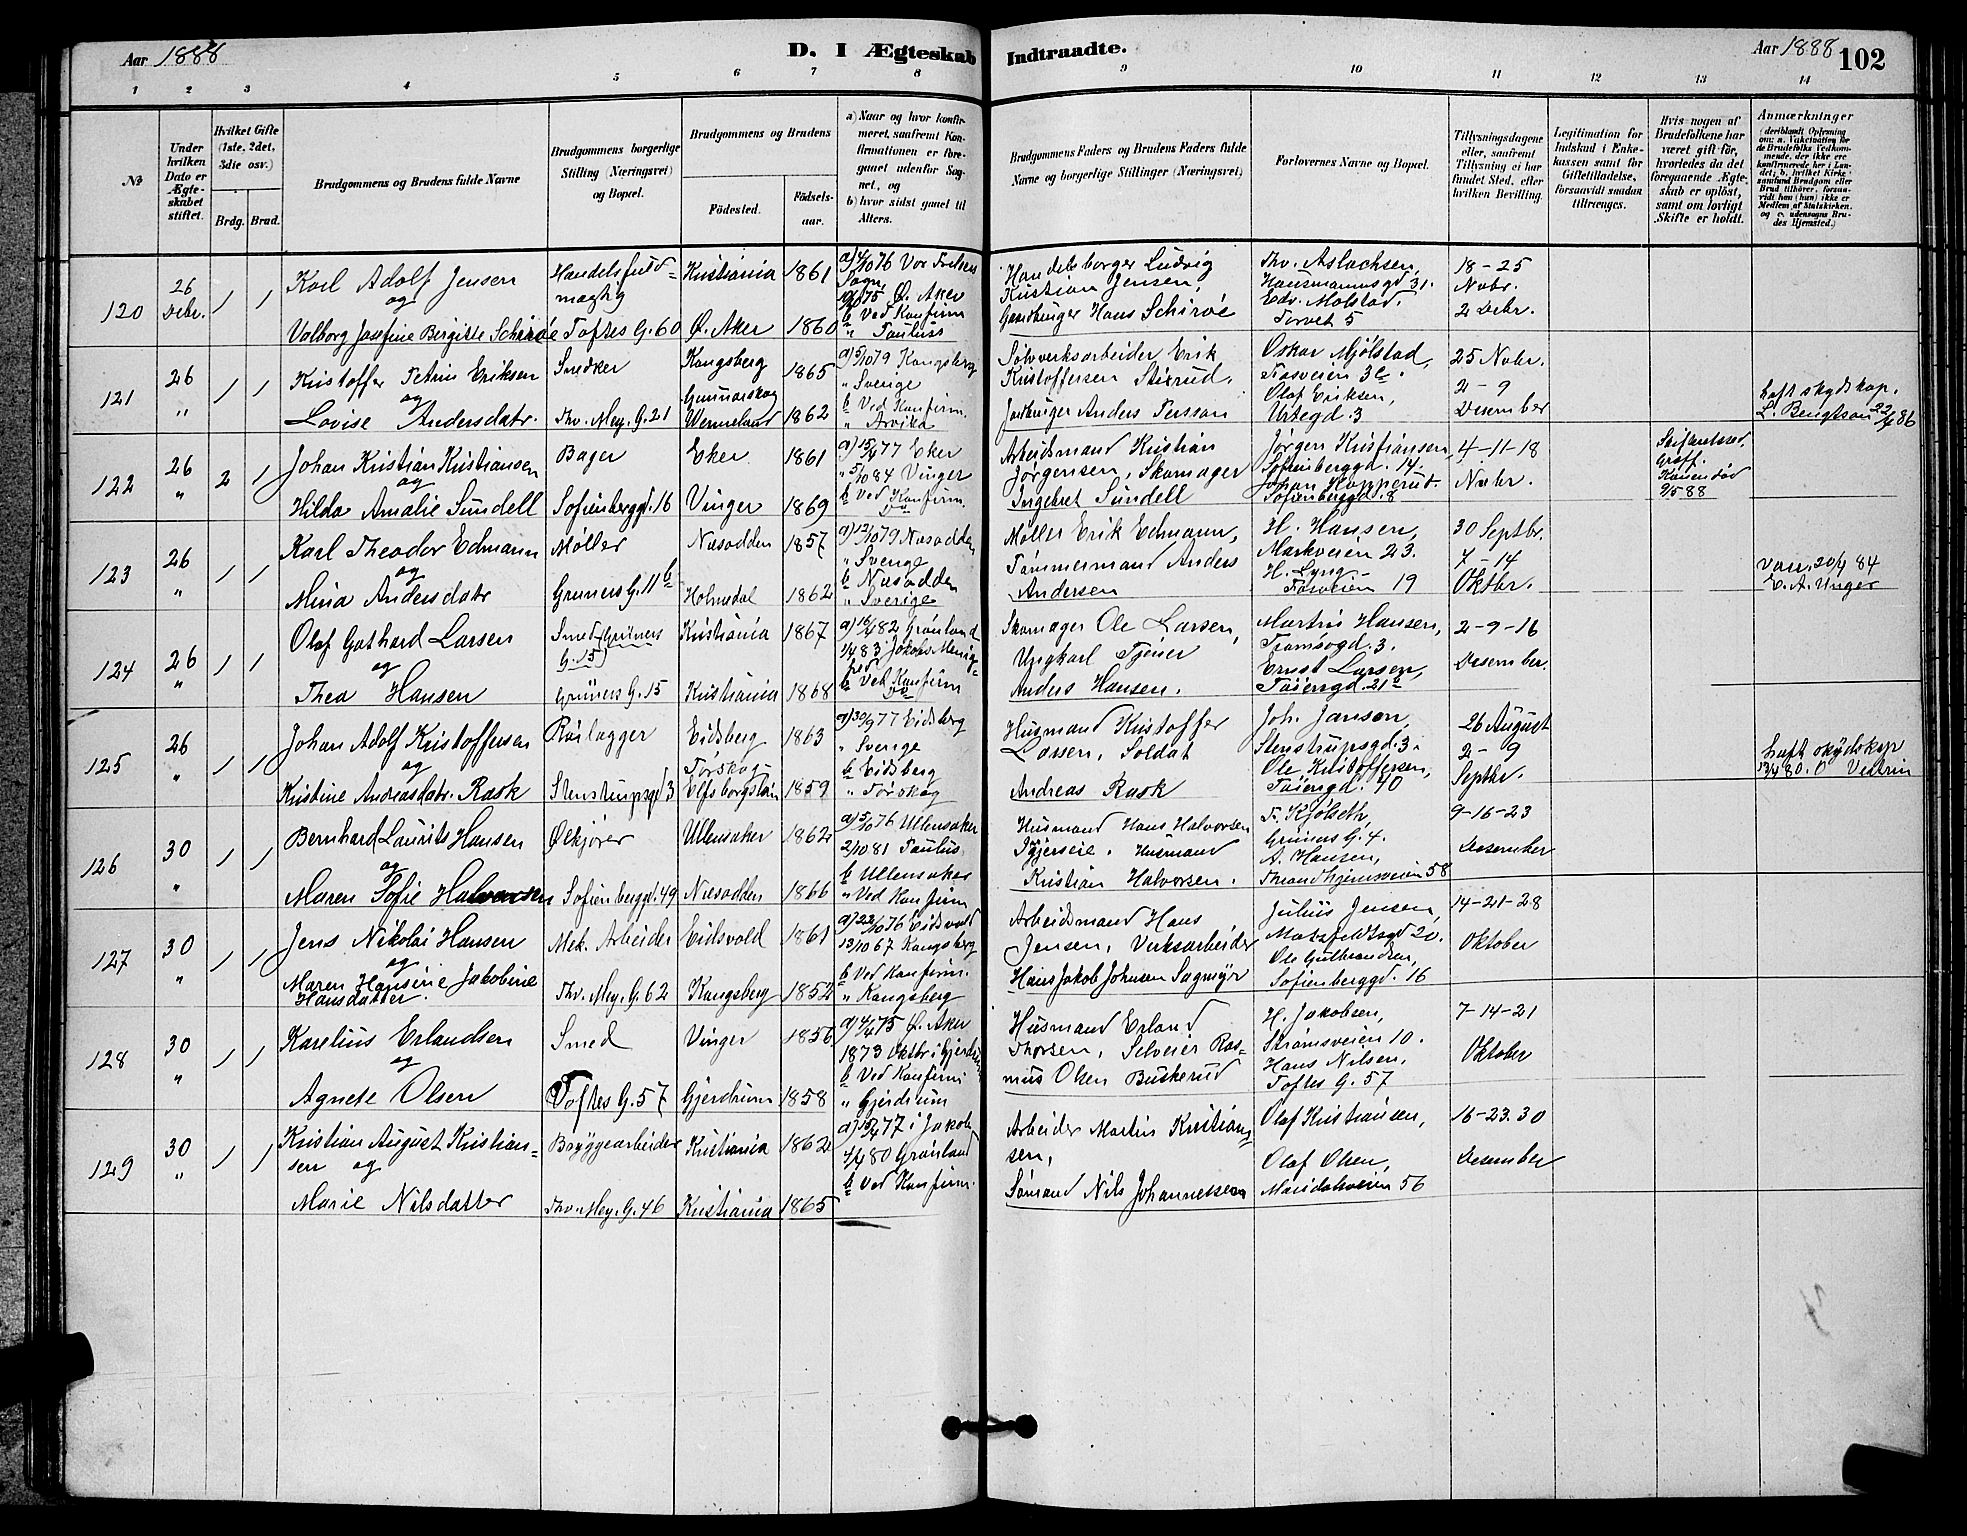 Aar 1888
D. I Ægteskab Indtraadte.
Aar 1888 102
1 2 3 4 5 6 7 8 9 10 11 12 13 14
No
Under hvilken Dato er Ægteskabet stiftet.
Hvilket Gifte (1ste, 2det, 3die osv.)
Brdg. Brud.
Brudgommens og Brudens fulde Navne
Brudgommens borgerlige Stilling (Næringsvei) og Bopæl.
Brudgommens og Brudens
Fødested.
Fødselsaar.
a) Naar og hvor konfirmeret, saafremt Konfirmationen er foregaaet udenfor Sognet, og
b) hvor sidst gaaet til Alters.
Brudgommens Faders og Brudens Faders fulde Navne og borgerlige Stillinger (Næringsvei)
Forlovernes Navne og Bopæl.
Tillysningsdagene eller, saafremt Tillysning ei har fundet Sted, efter hvilken Bevilling.
Legitimation for Indskud i Enkekassen samt for Giftetilladelse, forsaavidt saadan tiltrænges.
Hvis nogen af Brudefolkene har været gift før, hvorledes da det foregaaende Ægteskab er opløst, samt om lovligt Skifte er holdt.
Anmærkninger
120 26 Debr. 1 1
Karl Adolf Jensen
og
Valborg Josefine Birgitte Schirøe
Handelsfuldmægtig
Toftes G. 60
Kristiania 1861
Ø. Aker 1860
b Ved Konfirm
" Paulus
Handelsborger Ludvig
Kristian Jensen,
Gaardbruger Hans Schirøe
Thv. Aslachsen,
Hausmannsgd 31.
Edv. Molstad.
Torvet 5
18-25
Nobr.
2 Debr.
121 26 " 1 1
Kristoffer Petrus Eriksen
og
Lovise Andersdatr.
Snedker
Thv. Mey. G. 21
Kongsberg 1865
Gunnarskog
Wermeland 1862
a) 5/10 79 Kongsberg
" Sverige
b Ved Konfirm.
" Arvika
Sølvverksarbeider Erik
Kristoffersen Stixrud,
Anders Persson
Oskar Mjølstad,
Fossveien 3
Olaf Eriksen,
Urtegd. 3
25 Nobr.
2-9
Desember
L. Bengtson
122 26 " 2 1
Johan Kristian Kristiansen
og
Hilda Amalie Sundell
Bager
Sofienbergd. 16
Eker 1861
Vinger 1869
a) 15/4 77 Eker
" 5/10 84 Vinger
b Ved Konfirm.
Arbeidsmand Kristian
Jørgensen, Skomager
Ingebret Sundell
Jørgen Kristiansen,
Sofienberggd. 14.
Johan Hopperud.
Sofienberggd. 8
4-11-18
Nobr.
9/5 88
123 26 " 1 1
Karl Theodor Edmann
og
Mina Andersdatr
Møller
Gruners G. 11 b
Næsodden 1857
Holmedal 1862
a) 12/10 79 Næsodden
" Sverge
b Næsodden
" Sverige
Møller Erik Edmann,
Tømmermand Anders
Andersen
H. Hansen,
Markveien 23.
H. Lyng
Fosveien 19
30 Septbr.
7-14
Oktbr.
E. A. Unger
124 26 " 1 1
Olaf Gothard Larsen
og
Thea Hansen
Smed (Gruners
G. 15)
Gruners G. 15
Kristiania 1867
Kristiania 1868
a) 16/4 82 Grønland
b Ved Konfirm
Skomager Ole Larsen,
Ungkarl Tjener
Anders Hansen.
Martin Hansen,
Tromsøgd. 3.
Ernst Larsen,
Tøiengd. 21
2-9-16
Desember.
125 26 " 1 1
Johan Adolf Kristoffersen
og
Kristine Andreasdatr. Rask
Rørlægger
Stenstrupsgd 3
Eidsberg 1863
Torskog
Elfsborgslän 1859
a) 30/9 77 Eidsberg
" Sverige
b Eidsberg
" Torskog
Husmand Kristoffer
Larsen, Soldat
Andreas Rask
Joh. Jansen,
Stenstrupsgd. 3.
Ole Kristoffersen,
Tøiengd. 40
26 August
2-9
Septbr.
126 30 " 1 1
Bernhard Laurits Hansen
og
Maren Sofie Halvorsen
Ølkjører
Sofienberggd. 49
Ullensaker 1862
Næsodden 1866
a) 5/10 76 Ullensaker
2/10 81 Paulus.
b Ullensaker
" Ved Konfirm
Husmand Hans Halvorsen
Husmand
Kristian Halvorsen.
F. Kjølseth,
Gruners G. 4.
A. Hansen,
Trondhjemsveien 58
9-16-23
Desember
127 30 " 1 1
Jens Nikolai Hansen
og
Maren Hansine Jakobine
Hansdatter.
Mek. Arbeider
Thv. Mey. G. 62
Eidsvold 1861
Kongsberg 1852
a) 22/10 76 Eidsvold
13/10 67 Kongsberg
b Ved Konfirm.
" Kongsberg
Arbeidsmand Hans
Jensen, Verksarbeider
Hans Jakob Johnsen Sagmyr
Julius Jensen,
Motzfeldtsgd 20.
Ole Gulbrandsen,
Sofienberggd. 16
14-21-28
Oktober
128 30 " 1 1
Karelius Erlandsen
og
Agnete Olsen
Smed
Toftes G. 57
Vinger 1856
Gjerdrum 1858
a) 4/4 75 Ø. Aker
1873 Oktbr i Gjerdrum
b Ved Konfirm
" Gjerdrum
Husmand Erland
Thorsen, Selveier Rasmus
Olsen Buskerud
H. Jakobsen,
Strømsveien 10.
Hans Nilsen,
Toftes G. 57
7-14-21
Oktober
129 30 " 1 1
Kristian August Kristiansen
og
Marie Nilsdatter
Bryggearbeider
Thv. Mey. G. 46
Kristiania 1862
Kristiania 1865
a) 15/4 77 i Jakob
4/4 80 Grønland
b Ved Konfirm.
Arbeider Martin Kristiansen,
Sømand Nils Johannessen
Olaf Kristiansen,
Olaf Olsen,
Maridalsveien 56
16-23.30
Desember